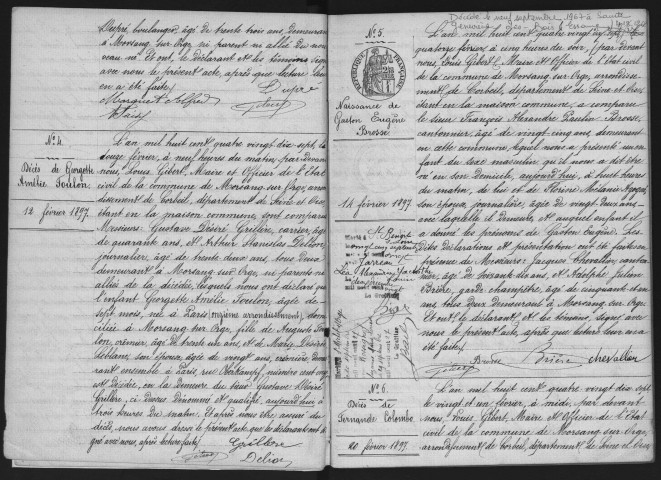 Dupré, boulanger, âgé de trente trois ans demeurant
à Morsang sur Orge, ni parent ni allié du nou-
veau né. Et ont, le déclarant et les témoins signé
avec nous le présent acte, après que lecture leur
en a été faite.
Dupré
Marquet Alfred
N° 4.
Décès de Georgette
Amélie Toulon.
12 février 1897.
L'an mil huit cent quatre vingt dix sept, le
douze février, à neuf heures du matin, par devant
Nous, Louis Gibert, Maire et Officier de l'Etat
civil de la commune de Morsang sur Orge, arron-
dissement de Corbeil, département de Seine et Oise,
étant en la maison commune, sont comparus
Messieurs Gustave Désiré Grillère, carrier, âgé
de quarante ans, et Arthur Stanislas Délion,
journalier, âgé de trente deux ans, tous deux
demeurant à Morsang sur Orge, ni parents ni
alliés de la décédée, lesquels nous ont déclaré que
l'enfant Georgette Amélie Toulon, âgée de
sept mois, née à Paris (onzième arrondissement) domi-
ciliée à Morsang sur Orge, fille de Auguste Tou-
lon, crémier, âgé de trente un ans, et de Marie Désirée
Leblanc, son épouse, âgée de vingt ans, crémière, demeu-
rant ensemble à Paris, rue Oberkampf, numéro cent cinq
est décédée, en la demeure du sieur Gustave Désiré
Grillère, ci-dessus dénommé et qualifié, aujourd'hui à
trois heures du matin. Et après nous être assuré du
décès, nous avons dressé le présent acte, que les déclarants ont si-
gné avec nous, après lecture faite.
Grillère
Gibert
Délion
Décédé le neuf septembre 1967 à Sainte
Geneviève des Bois (Essonne)
N° 5.
RÉPUBLIQUE FRANÇAISE
Naissance de
Gaston Eugène
Brosse
14 février 1897.
L'an mil huit cent quatre vingt dix sept, le
quatorze février à cinq heures du soir, par devant
nous, Louis Gibert, Maire et Officier de l'Etat civil
de la commune de Morsang sur Orge, arrondisse-
ment de Corbeil, département de Seine et Oise,
étant en la maison commune, a comparu
le sieur François Alexandre Paulin Brosse,
cantonnier, âgé de vingt cinq ans, demeurant
en cette commune, lequel nous a présenté un en-
fant du sexe masculin, qu'il nous a dit être
né en son domicile, aujourd'hui, à huit heures
du matin, de lui et de
son épouse, journalière, âgée de vingt deux ans,
avec laquelle il demeure, et auquel enfant il
a donné les prénoms de Gaston Eugène. Les-
dites déclarations et présentation ont été faites en
présence de Messieurs Jacques Chevalier, canton-
nier, âgé de soixante dix ans, et Adolphe Julien
Brière, garde champêtre, âgé de cinquante et un
ans, tous deux demeurant à Morsang sur Orge.
Et ont le déclarant et les témoins, signé avec
nous le présent acte, après que lecture leur en a
été faite.
Brosse
Brière
Chevallier
Gibert
N° 6.
Décès de
Fernande Colombe.
20 février 1897.
L'an mil huit cent quatre vingt dix sept
le vingt et un février, à midi, par devant
nous, Louis Gibert, Maire et Officier de l'Etat
civil de la commune de Morsang sur Orge,
arrondissement de Corbeil, département de Seine et Oise